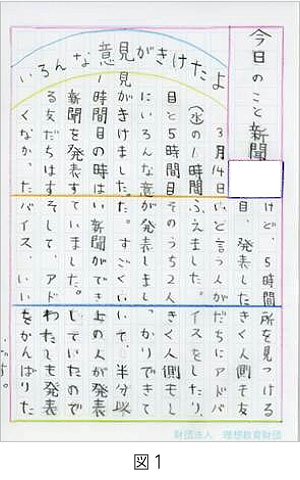 今日のこと新聞
いろんな意見がきけたよ
3月14日
(水)の1時間
目と5時間目
にいろんな意
見がきけました。
1時間目の時は
新聞を発表す
る友だちはす
くなかった
けど、5時間
目、発表した
いと言う人が
ふえました。
そのうち2人
が発表しまし
た。すごくい
い新聞ができ
ていました。
そして、アド
バイス、いい
所を見つける
きく人側も友
だちにアドバ
イスをしたり、
きく人側もし
っかりできて
いて、半分以
上の人が発表
していたので
わたしも発表
をがんばりた
いです。
財団法人 理想教育財団
図1